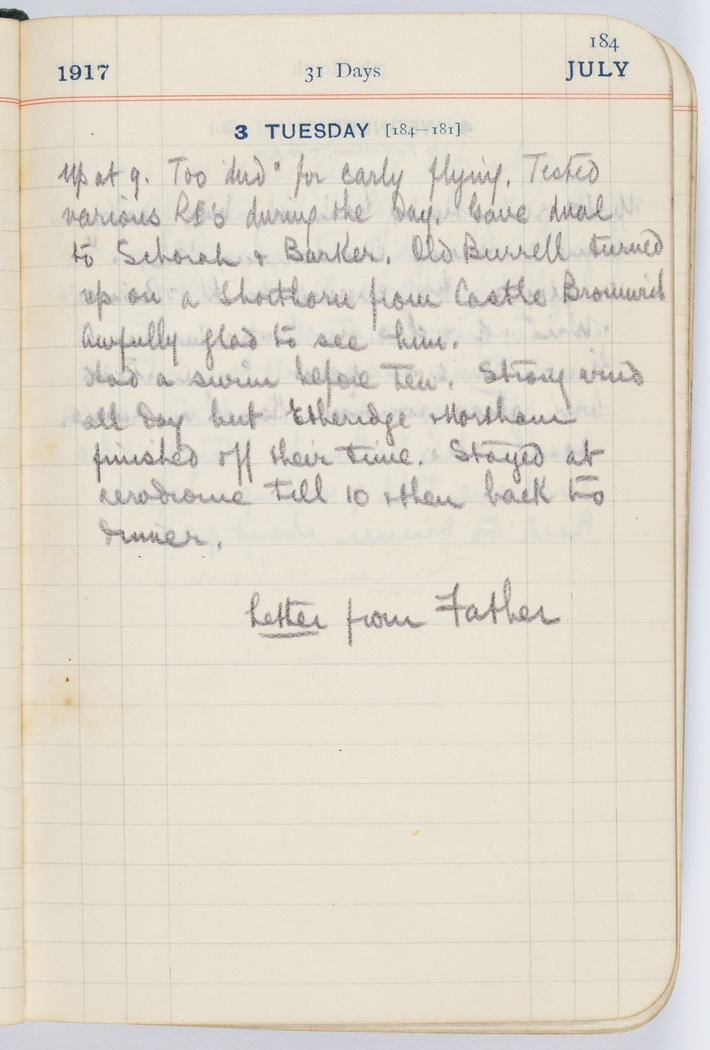 184
1917 31 Days JULY
3 TUESDAY [184—181]
Up at 9. Too "dud" for early flying. Tested
various RE8's during the day. Gave dual
to Schorah & Barker. Old Burrell turned
up on a Shorthorn from Castle Bromwich
Awfully glad to see him.
Had a swim before Tea. Strong wind
all day but Etheridge & Hortham
finished off their time. Stayed at
aerodrome till 10 & then back to
dinner.
Letter from Father